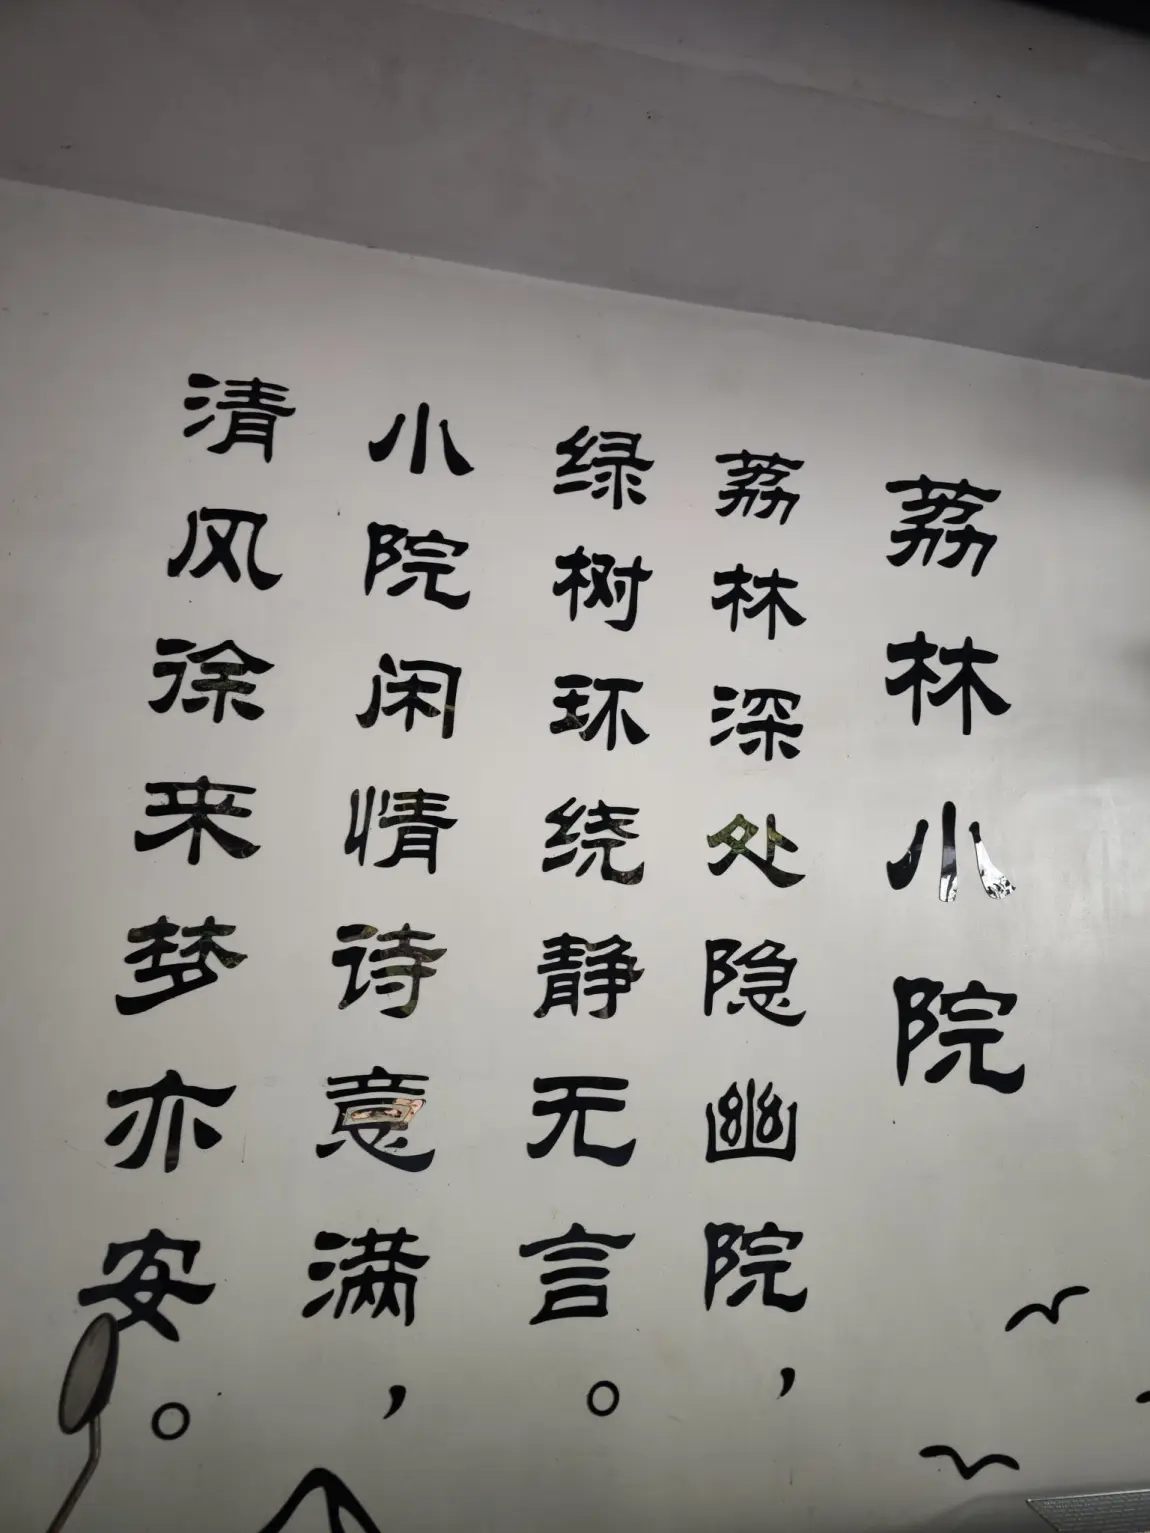 荔林小院
荔林深处隐幽院，
绿树环绕静无言。
小院闲情诗意满，
清风徐来梦亦安。